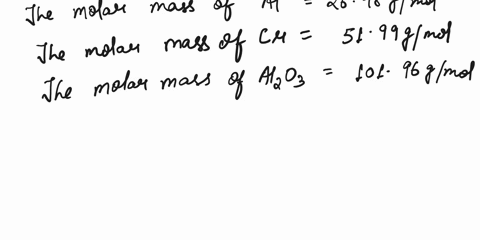 The molar mass of Al = 26.98 g/mol
The molar mass of Cr = 51.99 g/mol
The molar mass of Al2O3 = 101.96 g/mol